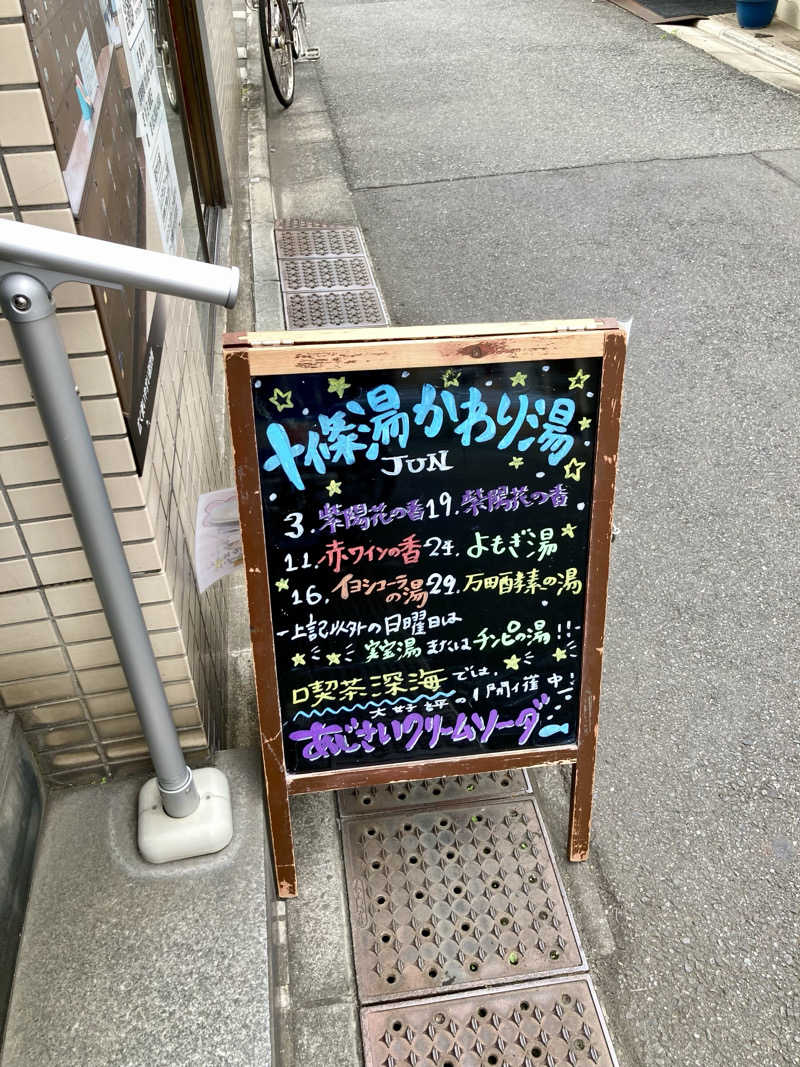 十條湯かわり湯
JUN
3. 紫陽花の香 19. 紫陽花の香
11. 赤ワインの香 24. よもぎ湯
16. イヨシコーラの湯 29. 万田酵素の湯
上記以外の日曜日は
宝湯またはチンピの湯!!
喫茶深海では、
大好評の
開催中!
あじさいクリームソーダ